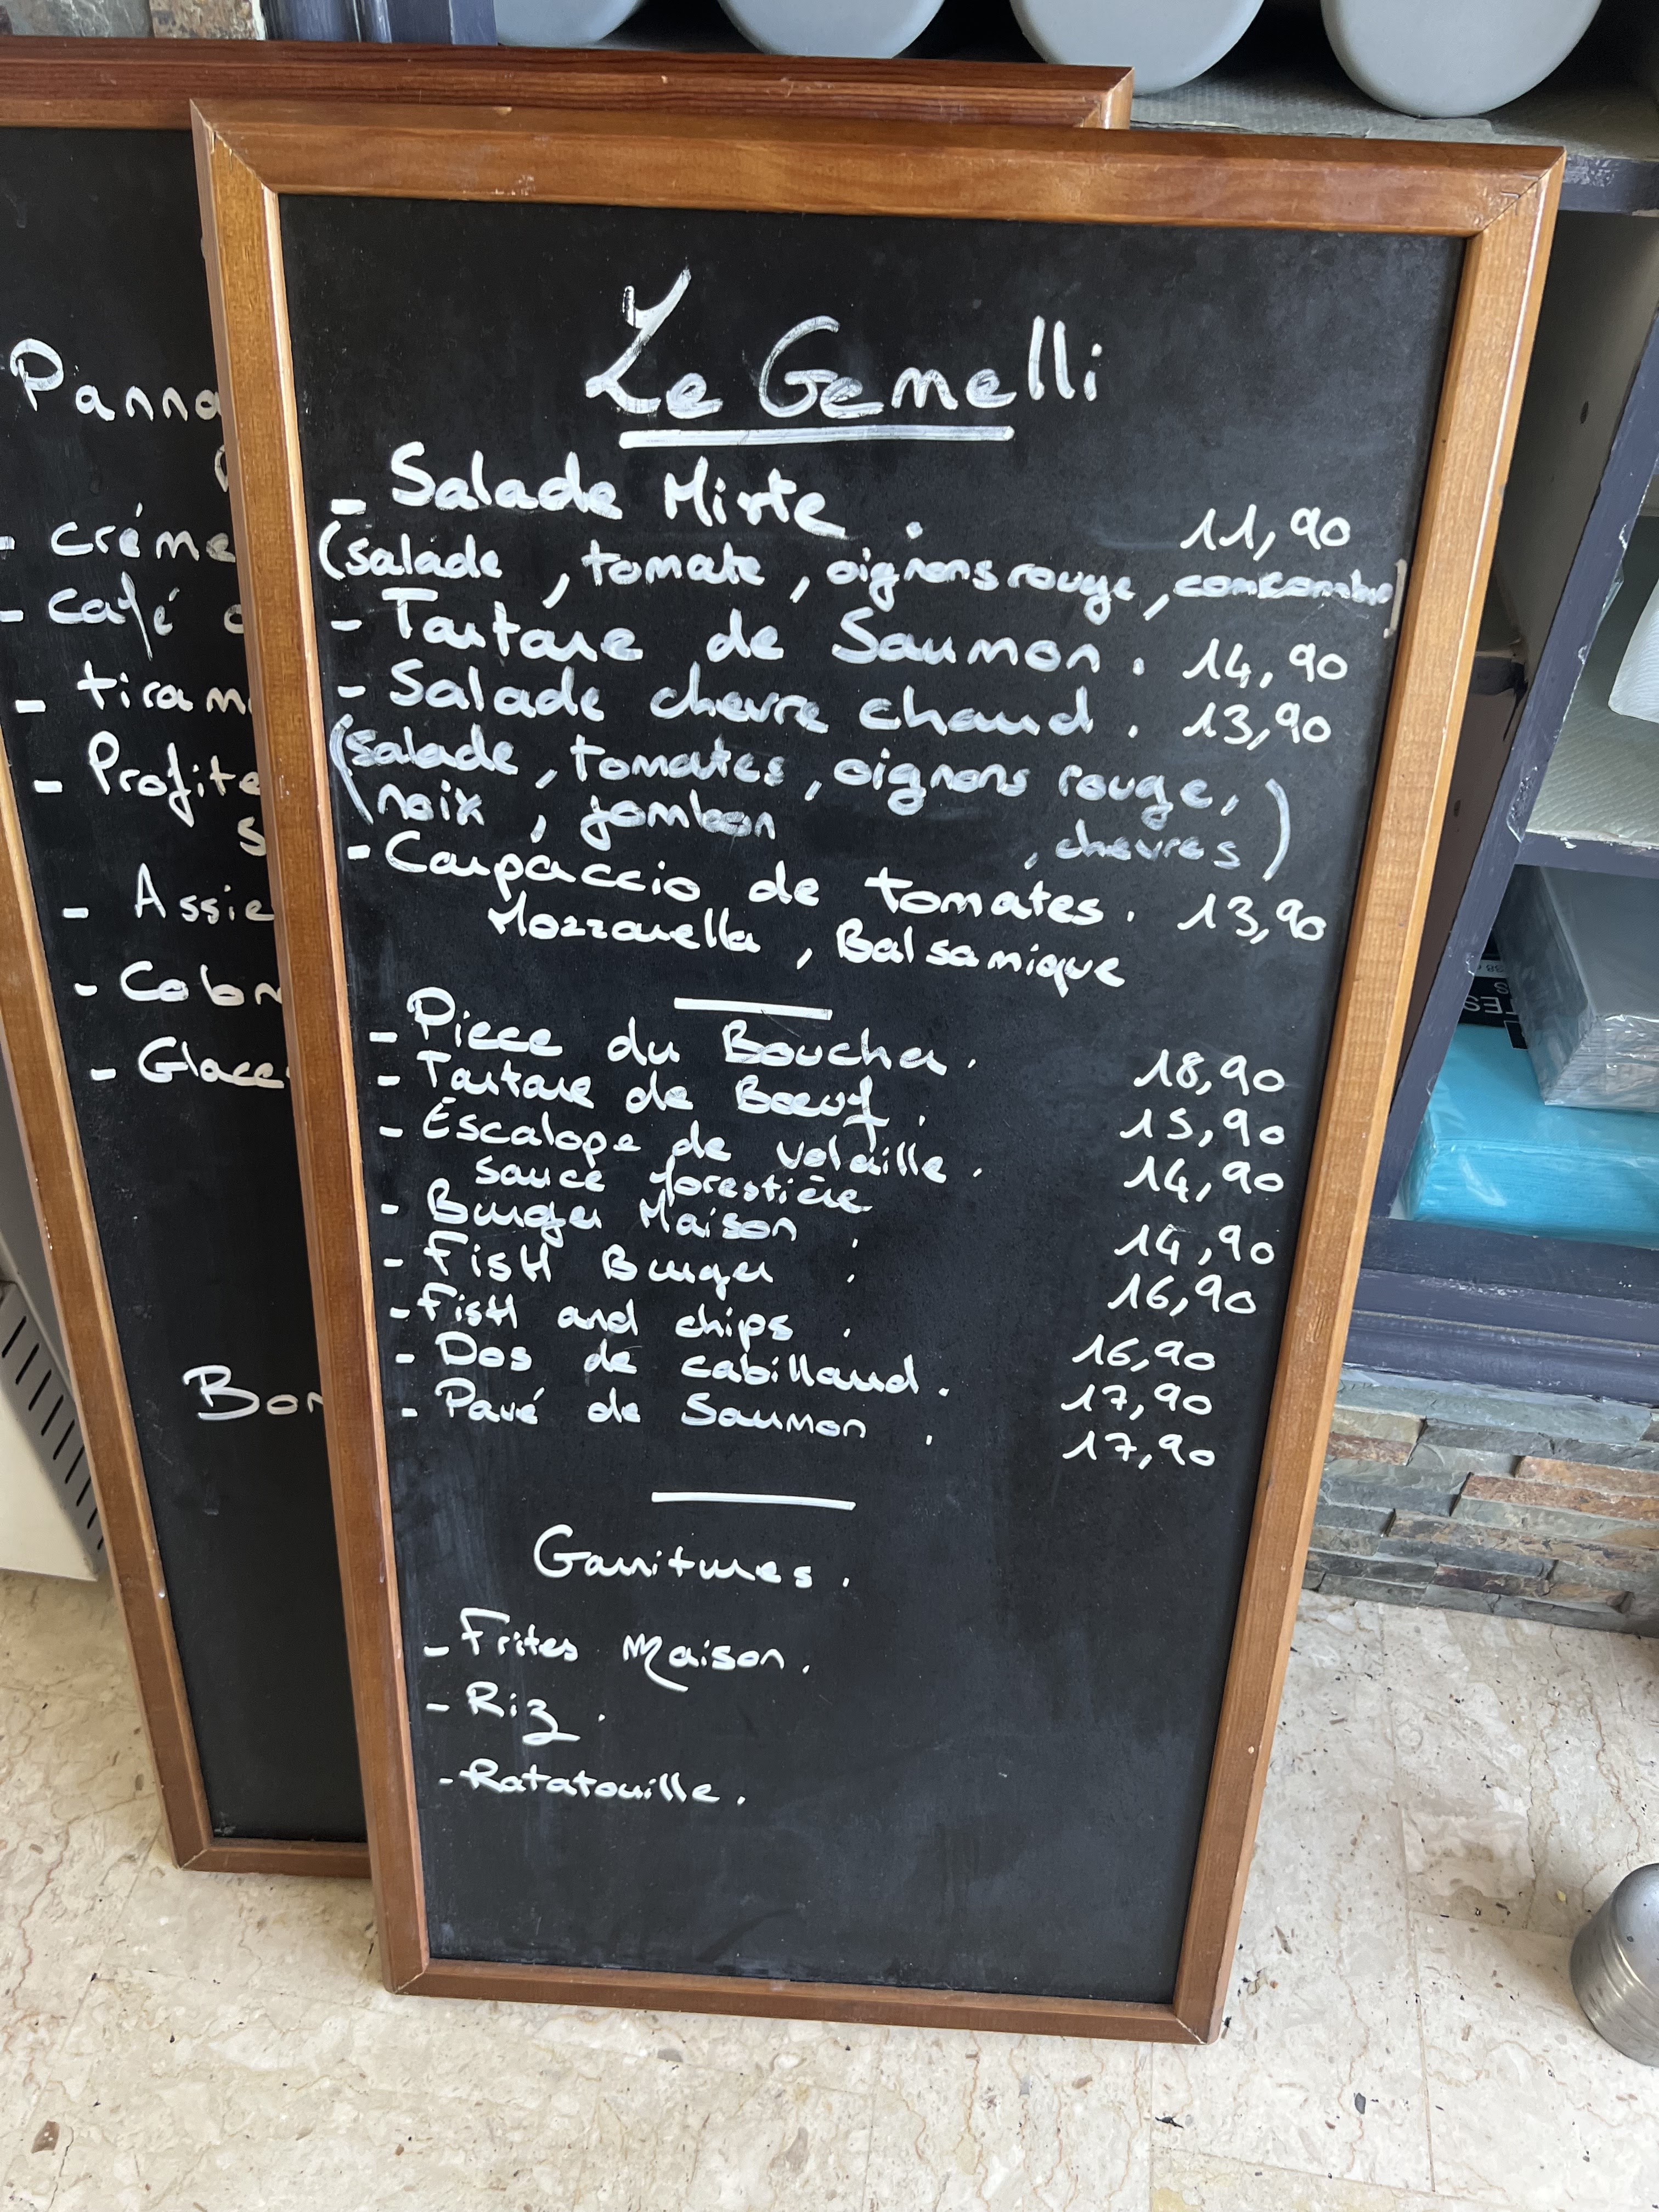 Le Gemelli
- Salade Mixte . 11,90
(salade , tomate , oignons rouge , concombre)
- Tartare de Saumon . 14,90
- Salade chevre chaud . 13,90
(salade , tomates , oignons rouge ,
noix , jambon , chevres )
- Carpaccio de tomates . 13,90
Mozzarella , Balsamique
- Piece du Boucher . 18,90
- Tartare de Boeuf . 15,90
- Escalope de volaille . 14,90
sauce forestière
- Burger Maison . 14,90
- FisH Burger . 16,90
- FisH and chips . 16,90
- Dos de cabillaud . 17,90
- Pavé de Saumon . 17,90
Garnitures .
- Frites Maison .
- Riz .
- Ratatouille .
Panna
- créme
- café
- tiram
- Profite
- Assie
- Glace
Bon